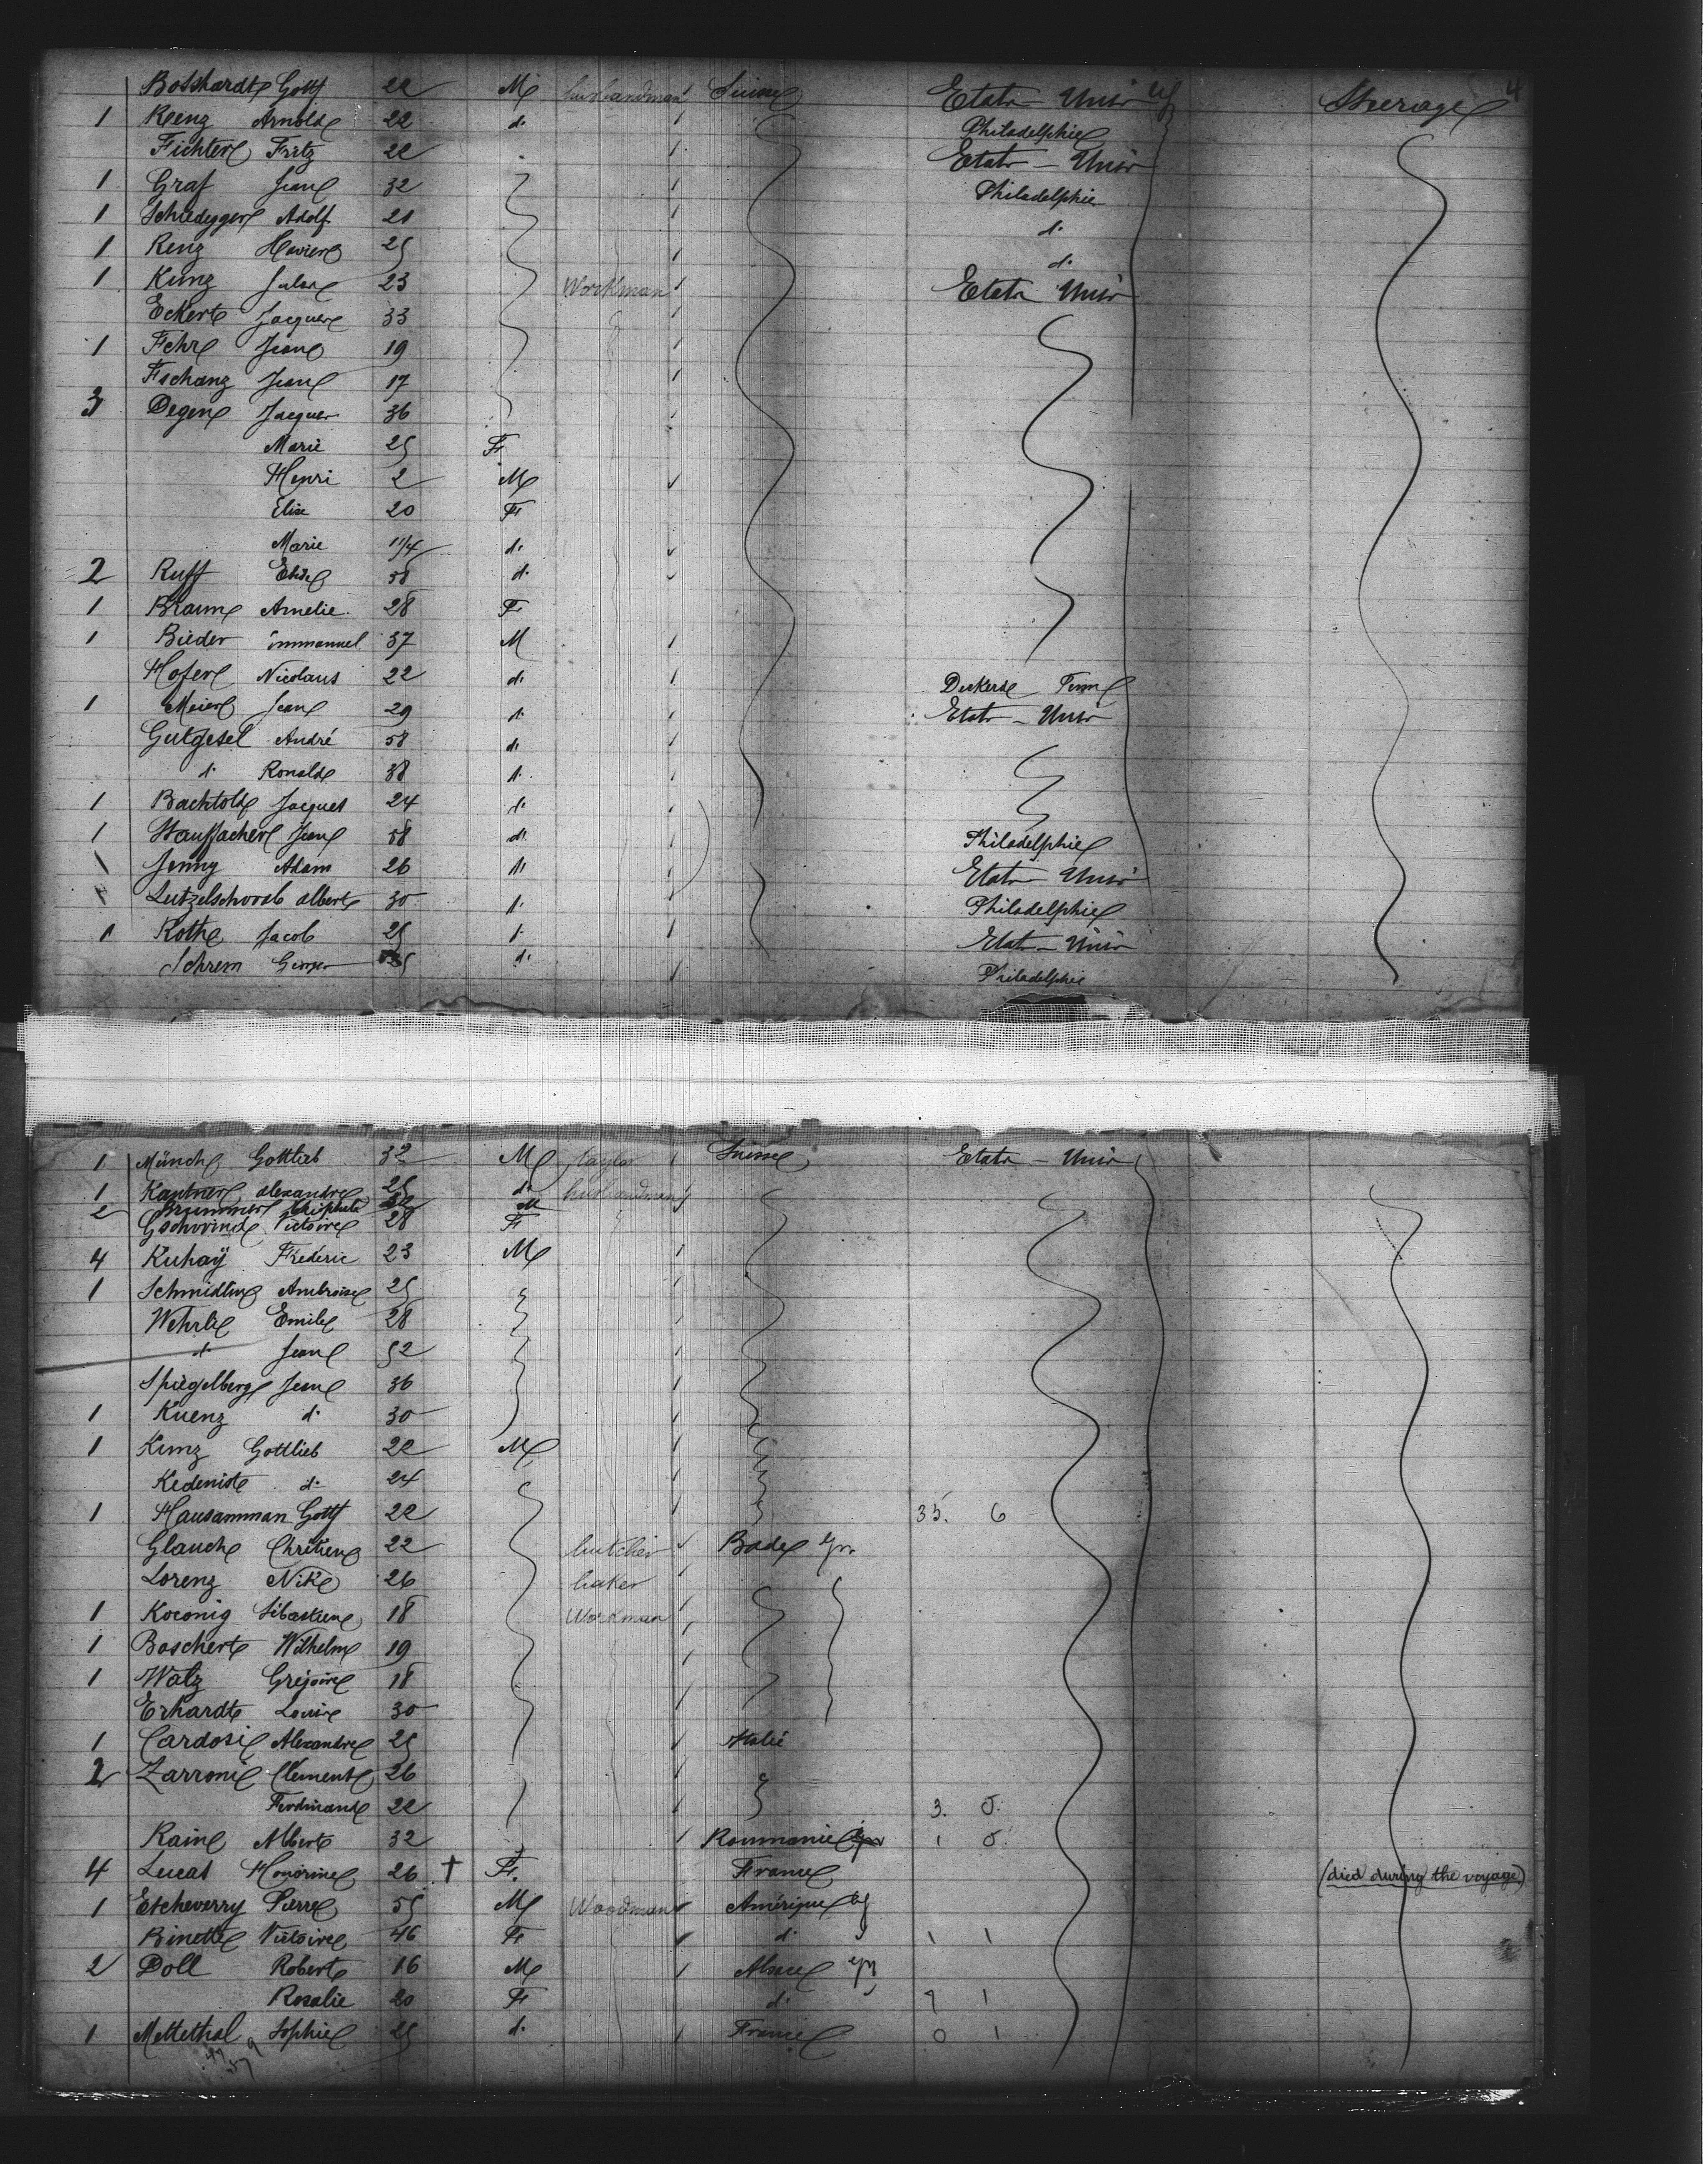 Bosshardt Gottf 22 M husbandman Suisse Etats-Unis Steerage 4
1 Renz Arnold 22 d. Philadelphie
Fichter Fritz 22 Etats-Unis
1 Graf Jean 32 Philadelphie
1 Scheidegger Adolf 21 d.
1 Renz Xavier 25 d.
1 Kunz Jules 23 Workman Etats Unis
Eckert Jacques 33
1 Fehr Jean 19
Tschanz Jean 17
3 Degen Jacques 36
Marie 25 F
Henri 2 M
Elise 20 F
Marie 11/4 d.
2 Ruff Elise 58 d.
1 Braun Amelie 28 F
1 Bieder Emmanuel 37 M
Hofer Nicolaus 22 d. Tenn
1 Meier Jean 29 d. Etats-Unis
Gutgesel André 58 d.
d. Ronald 38 d.
1 Bachtold Jacques 24 d.
1 Stauffacher Jean 58 d. Philadelphie
\ Jenny Adam 26 d. Etats Unis
Lutzelschwab Albert 30 d. Philadelphie
1 Roth Jacob 25 d. Etats-Unis
Schrem d. Philadelphie
1 Münch Gottlieb 32 M taylor Suisse Etats-Unis
1 Kantner Alexandre 25 d. husbandman
2 Brunner M
Gschwind Victoire 28 F
4 Kuhaÿ Frédéric 23 M
1 Schmidlin Ambroise 25
Wehrle Emile 28
d. Jean 52
Spiegelberg Jean 36
1 Kuenz d. 30
1 Kunz Gottlieb 22 M
Kedeniste d. 24
1 Hausamman Gottf 22 35. 6
Glauch Chrétien 22 butcher Bade
Lorenz Nike 26 baker
1 Koconig Sébastien 18 Workman
1 Boschert Wilhelm 19
1 Walz Grégoire 18
Erhardt Louise 30
1 Cardosi Alexandre 25 Italie
2 Zarroni Clement 26
Ferdinand 22 3. 0.
Rain Albert 32 Roumanie 1 0.
4 Lucas Honorine 26 † F. France (died during the voyage)
1 Etcheverry Pierre 55 M Woodman Amérique
Binette Victoire 46 F d. 1 1
2 Doll Robert 16 M Alsace
Rosalie 20 F d. 9 1
1 Mettethal Sophie 25 d. France 0 1